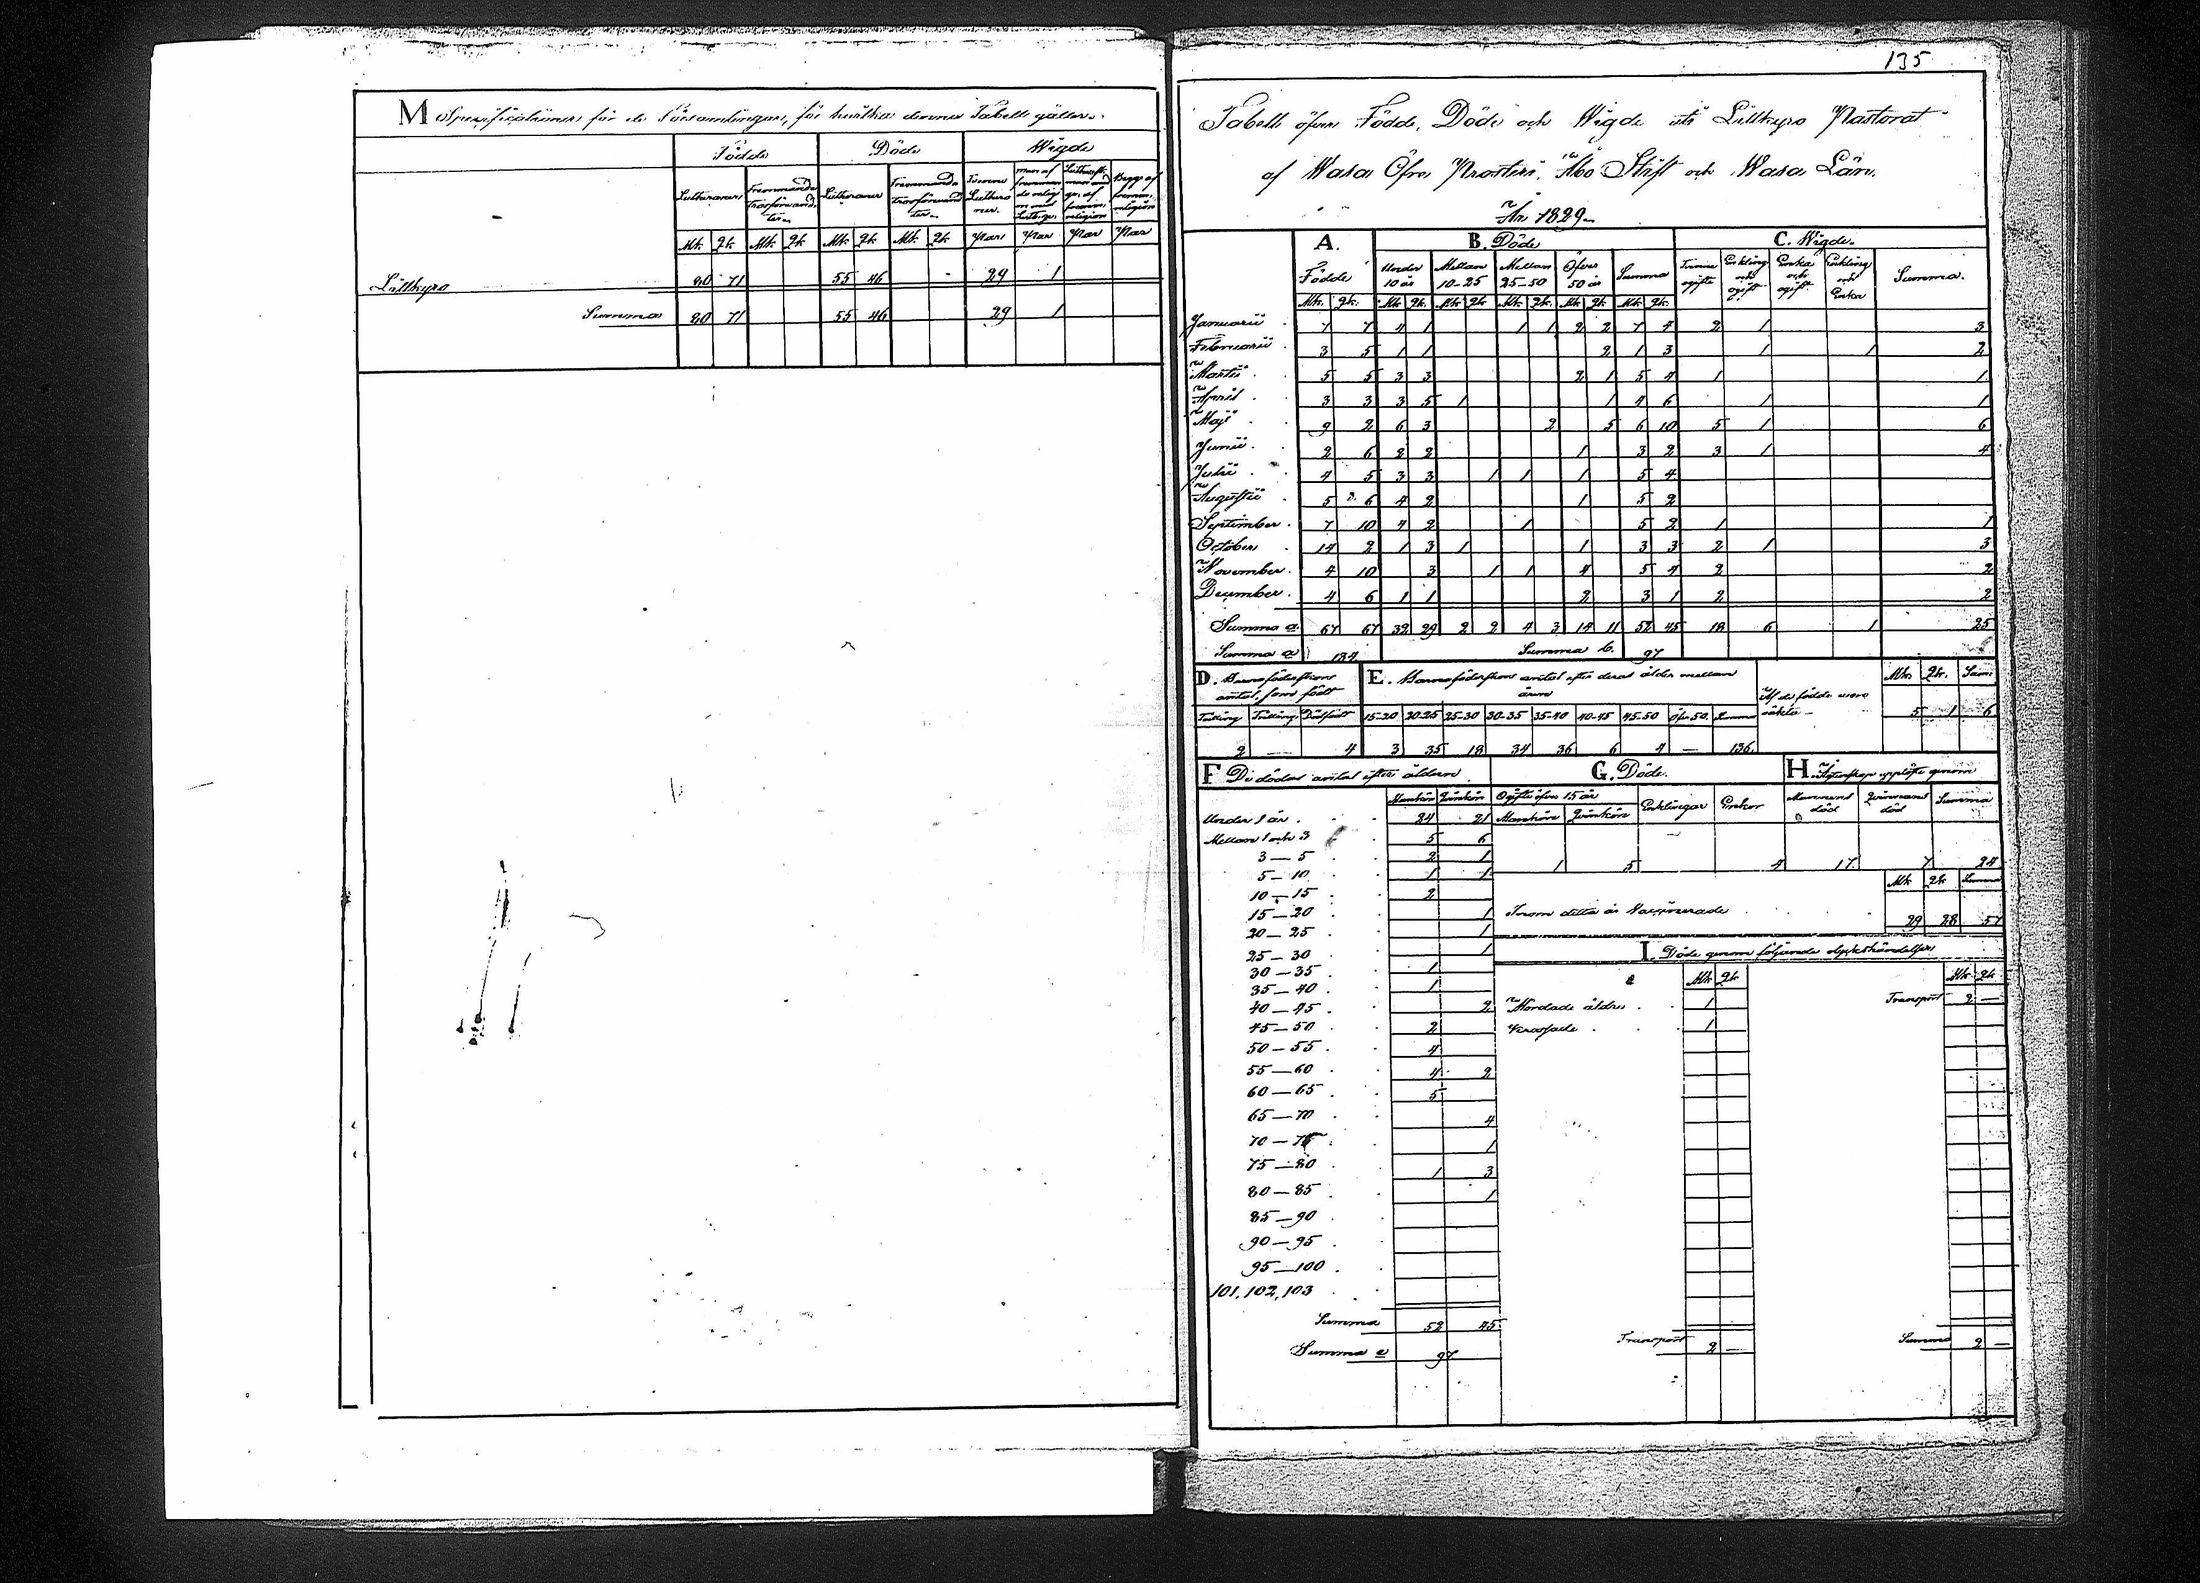 M Specification för de Församlingar, för hvilka denna Tabell gäller.
Födde Döde Wigde
Lutheraner Fremmande Trosförwandter Lutheraner Fremmande Trosförwandter
Mk. Qk. Mk. Qk. Mk. Qk. Mk. Qk. Par Par Par Par
Lillkyro 80 71 55 46 29 1
Summa 80 71 55 46 29 1
135
Tabell öfver Födde, Döde och Wigde uti Lillkyro Pastorat
af Wasa Öfre Prosteri, Åbo Stift och Wasa Län.
År 1829
A. B. Döde C. Wigde.
Födde Under 10 år Mellan 10-25 Mellan 25-50 Öfver 50 år Summa Enkling och ogift Enka och ogift Enkling och Enka Summa.
Mk. Qk. Mk. Qk. Mk. Qk. Mk. Qk. Mk. Qk. Mk. Qk.
Januarii 7 7 4 1 1 1 2 2 7 4 2 1 3
Februarii 3 5 1 1 2 1 3 1 1 2
Martii 5 5 3 3 2 1 5 4 1 1
April 3 3 3 5 1 1 4 6 1 1
Maji 9 2 6 3 2 5 6 10 5 1 6
Junii 2 6 2 2 1 3 2 3 1 4
Julii 4 5 3 3 1 1 1 5 4
Augustii 5 6 4 2 1 5 2
September 7 10 4 2 1 5 2 1 1
October 14 2 1 3 1 1 3 3 2 1 3
November 4 10 3 1 1 4 5 4 2 2
December 4 6 1 1 2 3 1 2 2
Summa a 67 67 32 29 2 2 4 3 14 11 52 45 18 6 1 25
Summa a 134 Summa b. 97
D. Barnaföderskors antal, som födt
E. Barnaföderskors antal efter deras ålder mellan åren
Af de födde voro oäkta Mk. Qk. Sum.
5 1 6
Tvilling Trilling Dödfödt 15-20 20-25 25-30 30-35 35-40 40-45 45-50 öfv. 50. Summa
2 — 4 3 35 18 34 36 6 4 — 136.
F De dödas antal efter åldern G. Döde. H. Äktenskap upplöste genom
Mankön Qvinkön Ogifte öfver 15 år Enklingar Enkor Mannens död Qvinnans död Summa
Mankön Qvinkön
1 5 4 17. 7 24
Under 1 år 24 21
Mellan 1 och 3 5 6
3—5 2 1
5—10 1 1
10—15 2
15—20 1
20—25 1
25—30 1
30—35 1
35—40 1
40—45 2
45—50 2
50—55 4
55—60 4 2
60—65 5
65—70 4
70—75 1
75—80 1 3
80—85 1
85—90
90—95
95—100
101, 102, 103
Summa 52 45
Summa e 97
Mk. Qk. Summa
Inom detta år Vaccinerade 29 28 57
I. Döde genom följande olyckshändelser
Mk. Qk. Mk. Qk.
Mordade äldre 1 Transport 2 —
1
Transport 2 — Summa 2 —